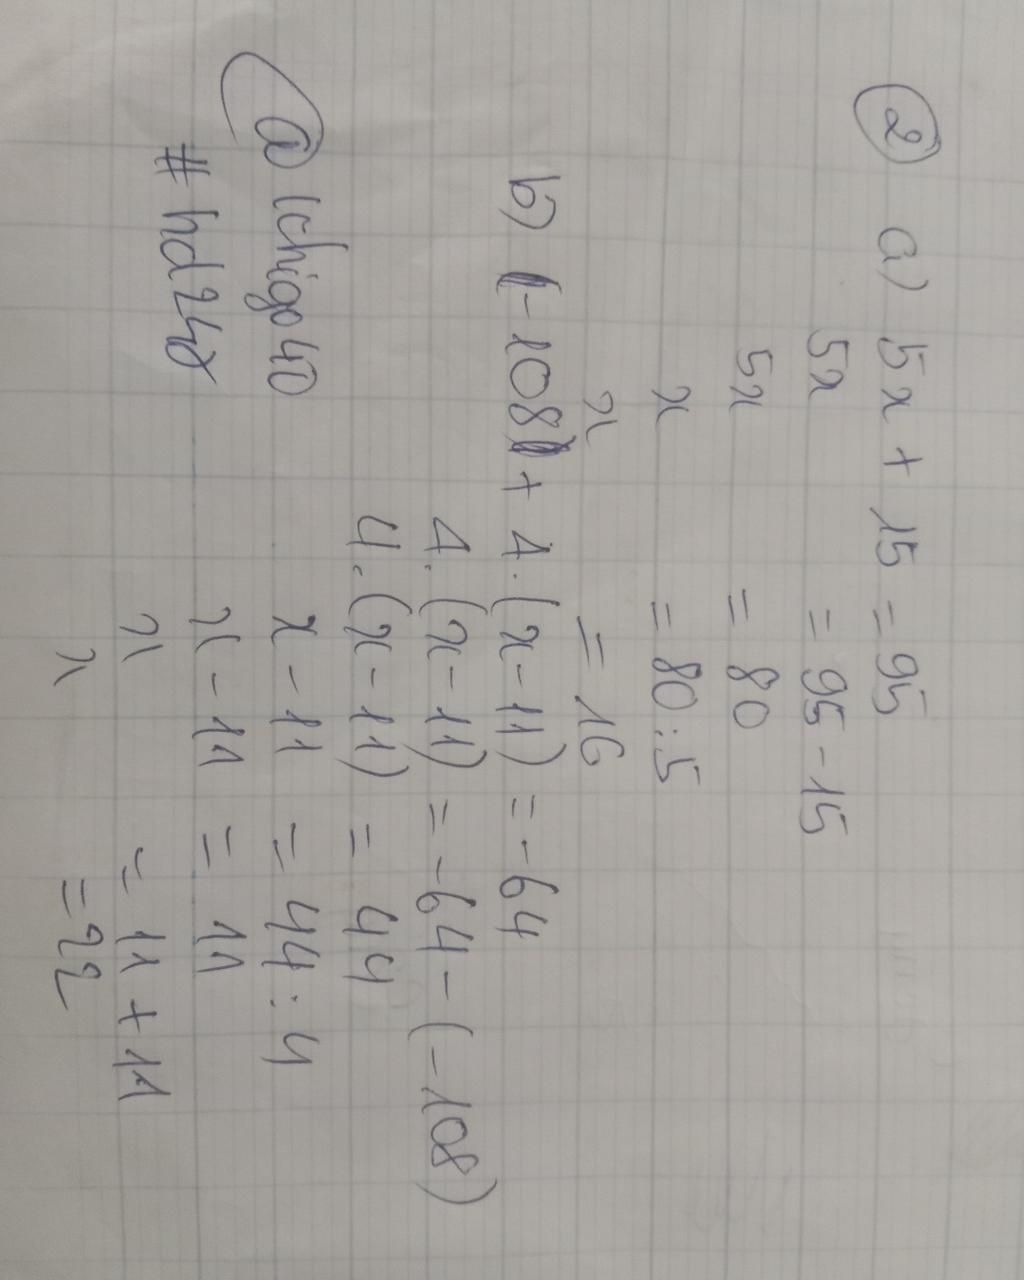 2 a) 5x + 15 = 95
5x = 95 - 15
5x = 80
x = 80 : 5
x = 16
b) -108 + 4. (x - 11) = -64
4. (x - 11) = -64 - (-108)
4. (x - 11) = 44
x - 11 = 44 : 4
x - 11 = 11
x = 11 + 11
x = 22
@ Ichigo40
# hd247